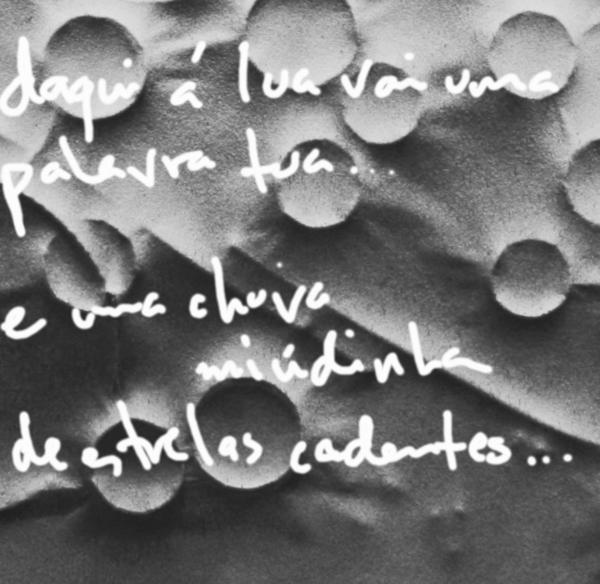 daqui á lua vai uma
palavra tua...
e uma chuva
miúdinha
de estrelas cadentes...